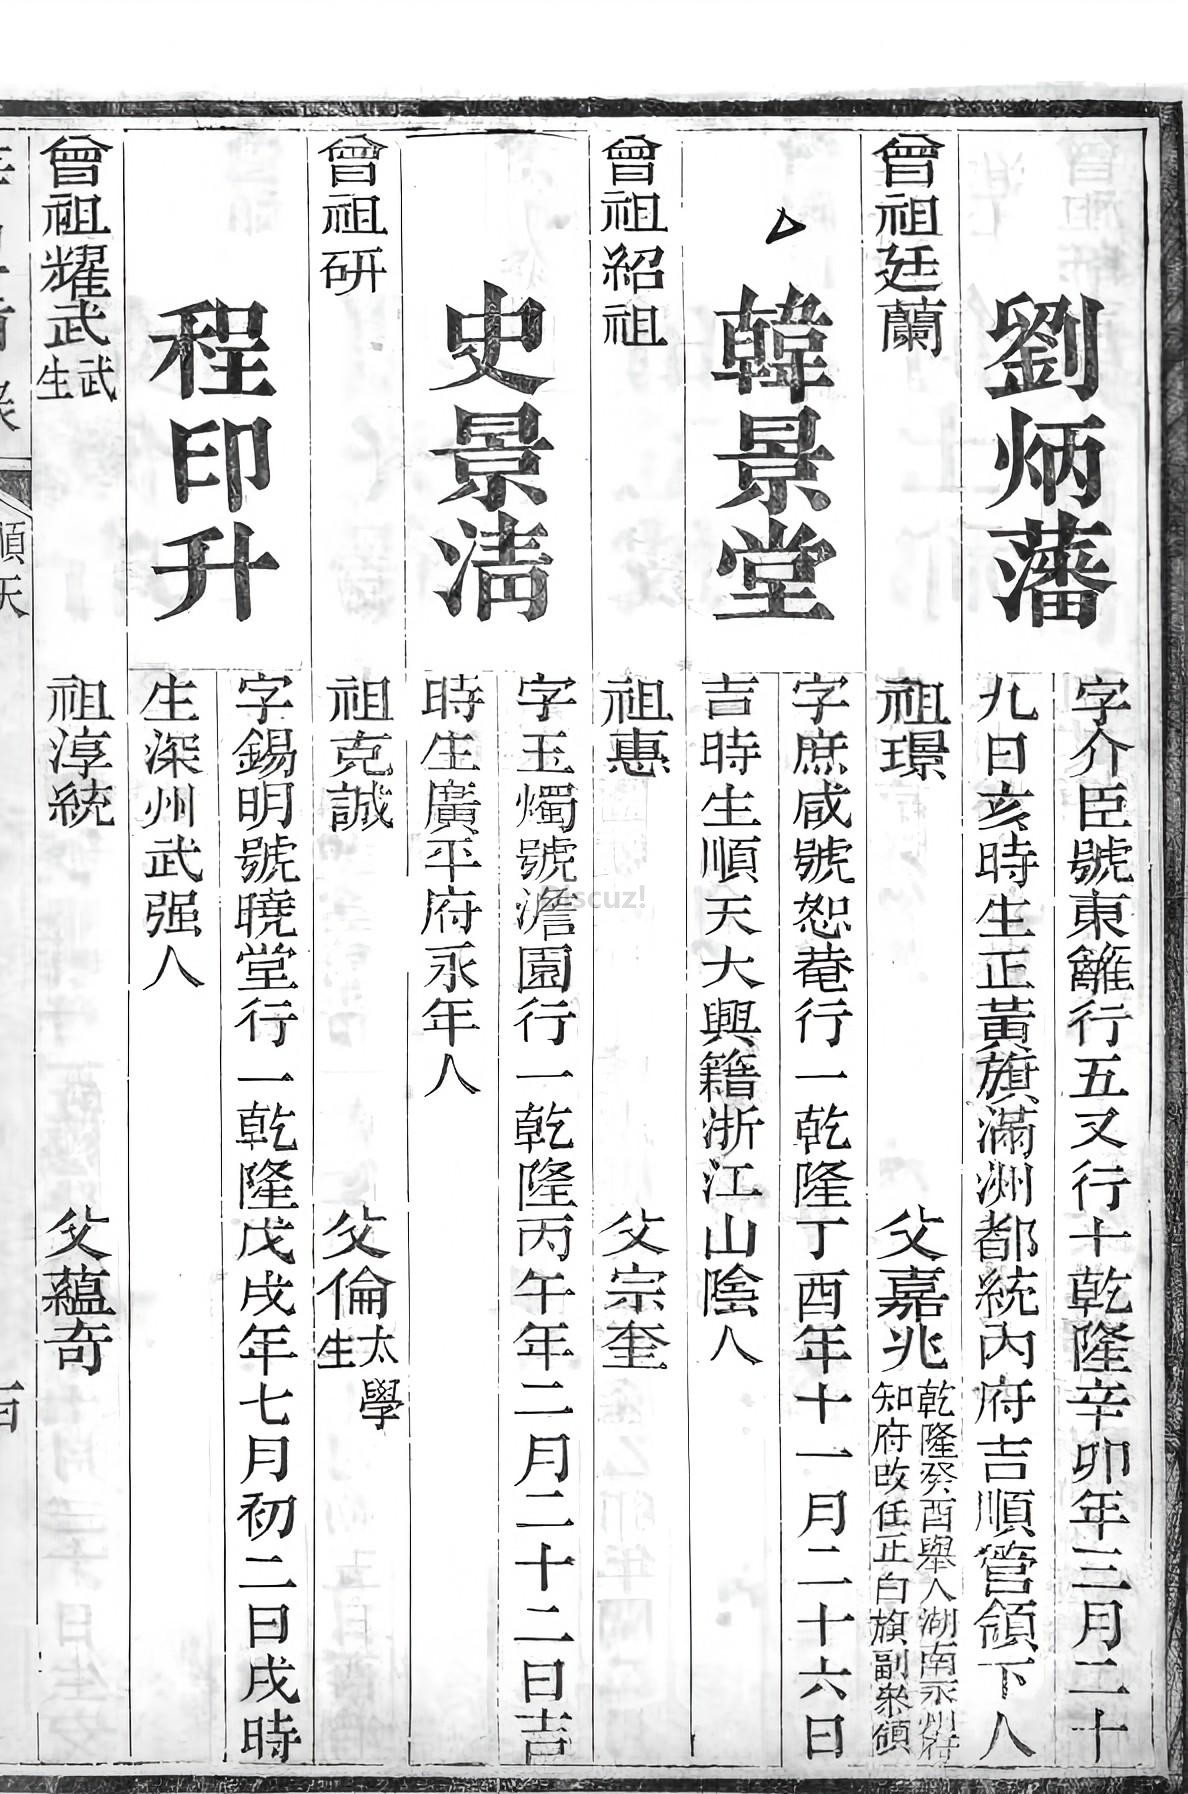 劉炳藩
字介臣號東籬行五又行十乾隆辛卯年三月二十
九日亥時生正黃旗滿洲都統內府吉順管領下人
曾祖廷蘭 祖璟 父嘉兆 乾隆癸酉舉人湖南永州府
知府改任正白旗副參領
韓景堂
字庶咸號恕菴行一乾隆丁酉年十一月二十六日
吉時生順天大興籍浙江山陰人
曾祖紹祖 祖惠 父宗奎
史景淸
字玉燭號澹園行一乾隆丙午年二月二十二日吉
時生廣平府永年人
曾祖硏 祖克誠 父倫 太學
生
程印升
字錫明號曉堂行一乾隆戊戌年七月初二日戌時
生深州武强人
曾祖耀武 武
生 祖淳統 父蘊奇
順天
Discuz!